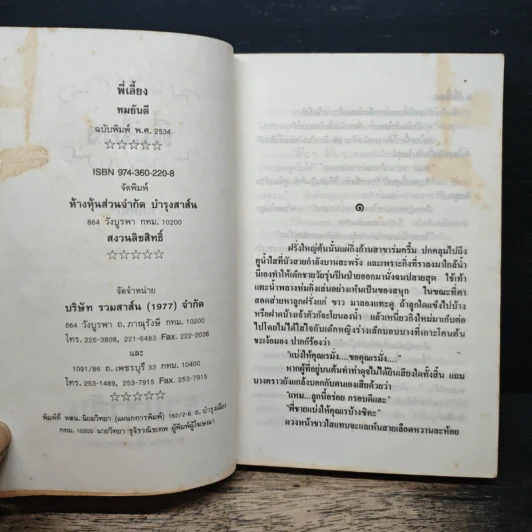 พี่เลี้ยง
ทมยันตี
ฉบับพิมพ์ พ.ศ. 2534
☆☆☆☆☆
ISBN 974-360-220-8
จัดพิมพ์
ห้างหุ้นส่วนจำกัด บำรุงสาส์น
864 วังบูรพา กทม. 10200
สงวนลิขสิทธิ์
☆☆☆☆☆
จัดจำหน่าย
บริษัท รวมสาส์น (1977) จำกัด
864 วังบูรพา ถ. ภาณุรังษี กทม. 10200
โทร. 226-3808, 221-6483 Fax. 222-2036
และ
1091/86 ถ. เพชรบุรี 33 กทม. 10400
โทร. 253-1489, 253-7915 Fax. 253-7915
☆☆☆☆☆
พิมพ์ที่ หสน. นิยมวิทยา (แผนกการพิมพ์) 162/2-6 ถ. บำรุงเมือง
กทม. 10200 นายวิทยา รุจิรวณิชเทพ ผู้พิมพ์ผู้โฆษณา
๑
ฝรั่งใหญ่ต้นนั้นแผ่กิ่งก้านสาขาร่มครึ้ม ปกคลุมไปถึง
คูน้ำใสที่บัวสายกำลังบานสะพรั่ง และเพราะกิ่งที่ราลงมาใกล้น้ำ
นี่เองทำให้เด็กชายวัยรุ่นปีนป่ายออกมานั่งจนปลายสุด ใช้เท้า
แตะน้ำพลางห่มกิ่งเล่นอย่างเห็นเป็นของสนุก ในขณะที่ตา
สอดส่ายหาลูกฝรั่งแก่ ขาว มาลองแทะดู ถ้าลูกใดแข็งไปบ้าง
หรือฝาดบ้างเจ้าตัวก็จะโยนลงน้ำ แล้วเหนี่ยวกิ่งใหม่มาเก็บต่อ
ไปโดยไม่ได้ใส่ใจกับเด็กหญิงร่างเล็กบอบบางที่เกาะโคนต้น
ชะเง้อมอง ปากก็ร้องว่า
"แบ่งให้คุณเรมั่ง....ขอคุณเรมั่ง...."
หากผู้ที่อยู่บนต้นทำท่าดุจไม่ได้ยินเสียงใดทั้งสิ้น แถม
บางคราวยังแกล้งบอกกับตนเองเสียด้วยว่า
"แหม...ลูกนี้อร่อย กรอบดีแฮะ"
"พี่ชายแบ่งให้คุณเรบ้างซิคะ"
ดวงหน้าขาวใสแทบจะแลเห็นสายเลือดหวานละห้อย